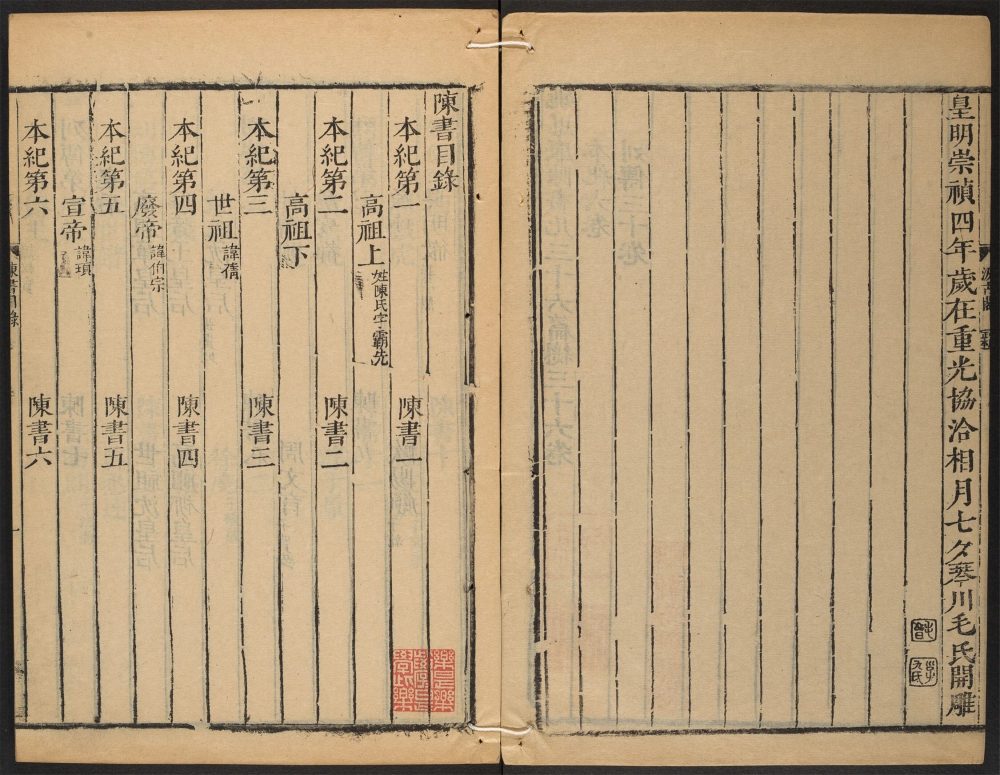 皇明崇禎四年歲在重光協洽相月七夕琴川毛氏開雕
陳書目錄
本紀第一 陳書一
高祖上 姓陳氏字霸先
本紀第二 陳書二
高祖下
本紀第三 陳書三
世祖 諱蒨
本紀第四 陳書四
廢帝 諱伯宗
本紀第五 陳書五
宣帝 諱頊
本紀第六 陳書六
陳書目錄